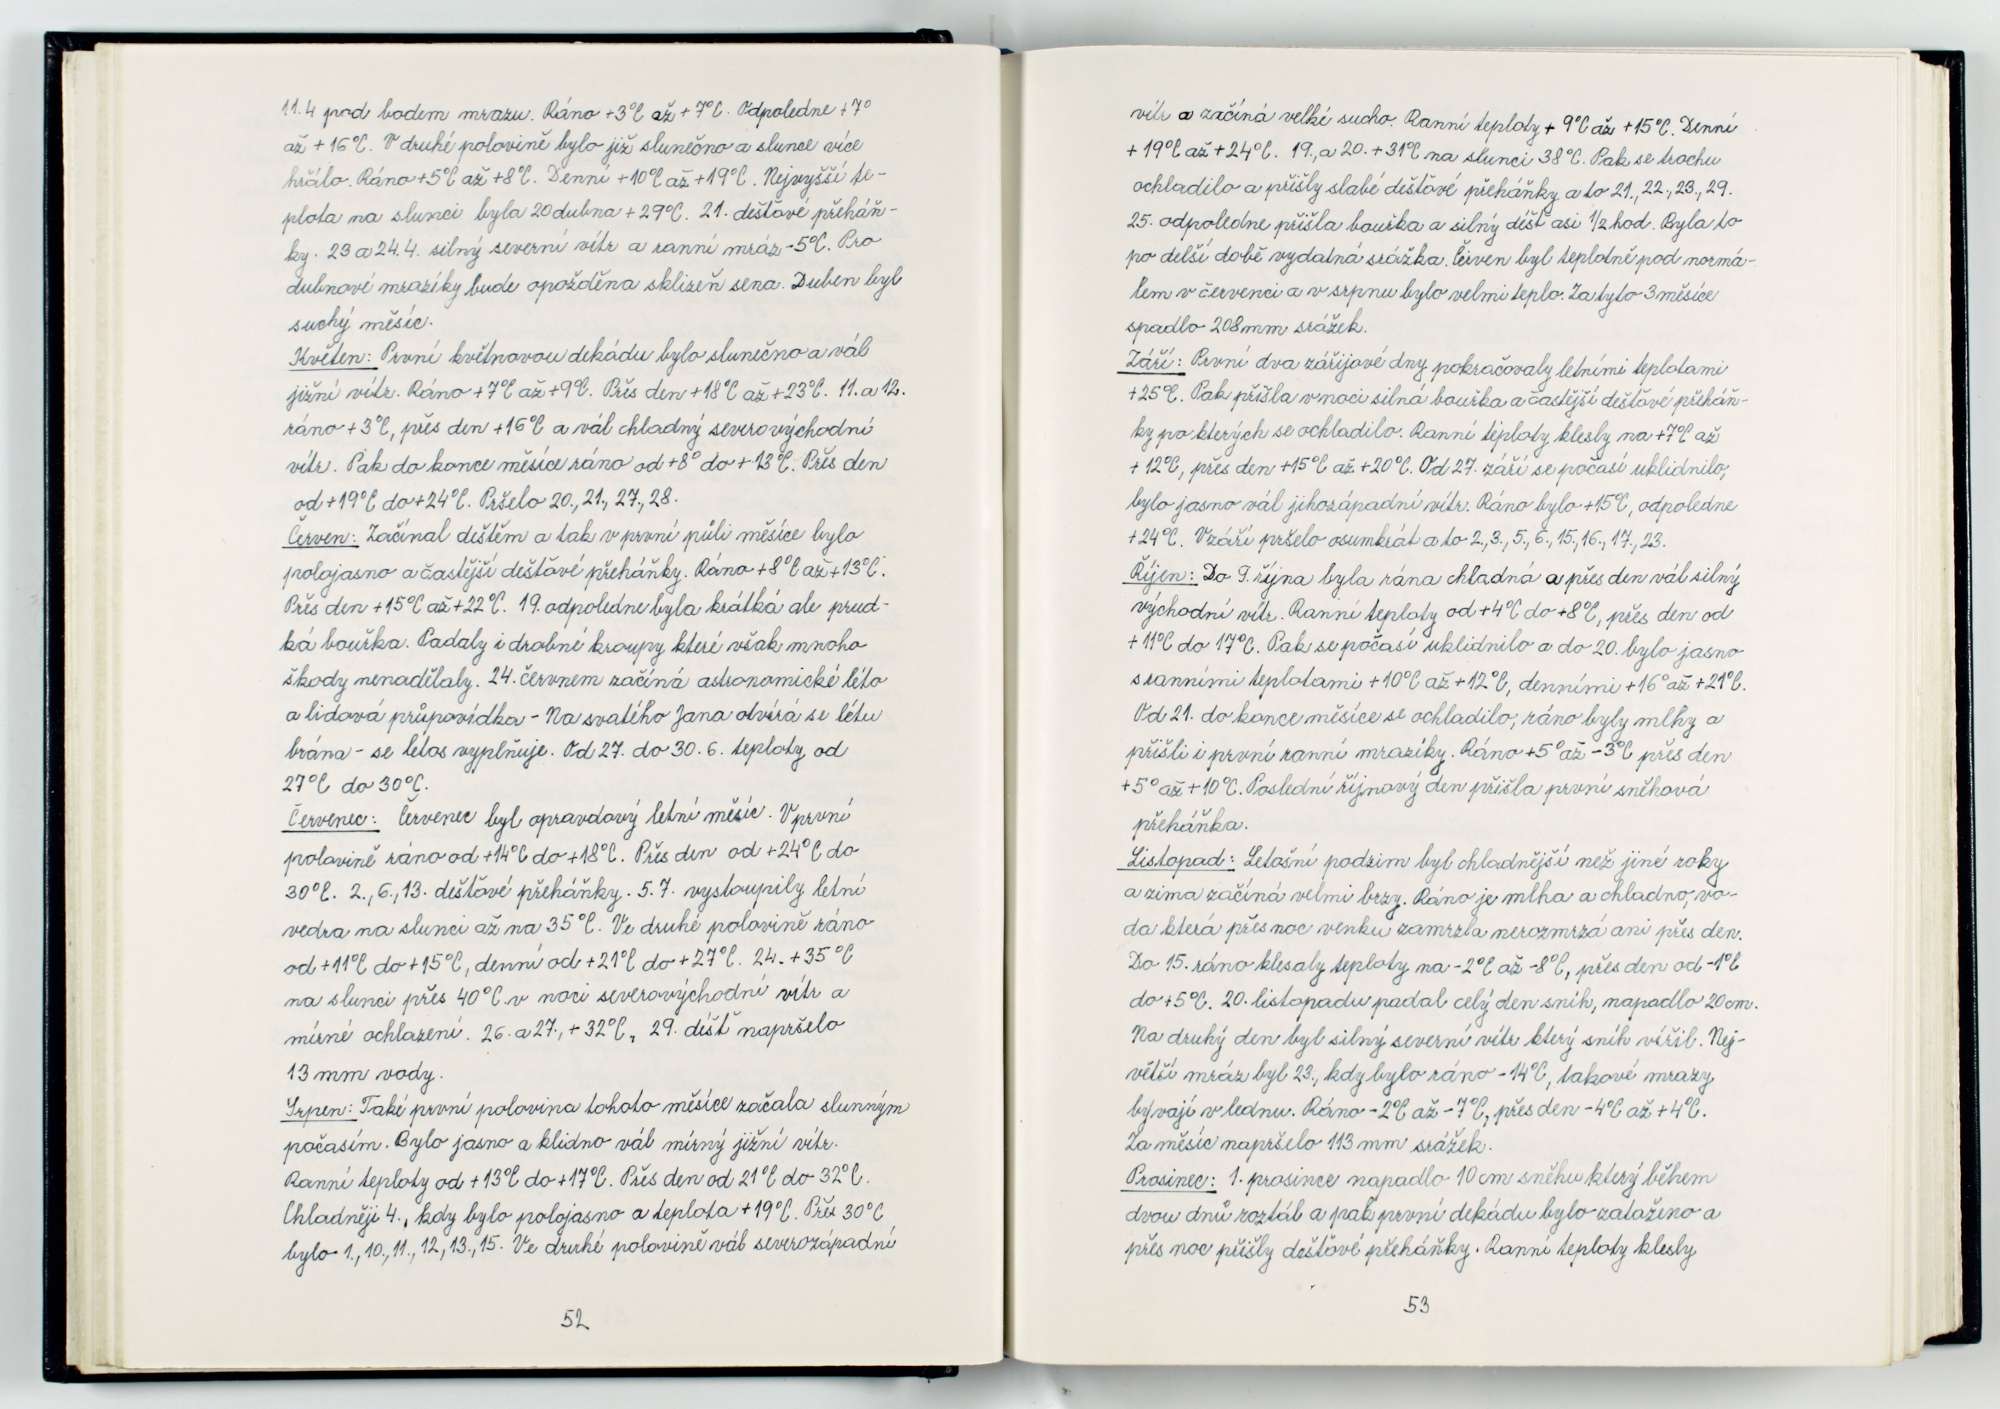 11.4 pod bodem mrazu. Ráno +3°C až +7°C. Odpoledne +7°
až +16°C. V druhé polovině bylo již slunečno a slunce více
hřálo. Ráno +5°C až +8°C. Denní +10°C až +19°C. Nejvyšší te-
plota na slunci byla 20 dubna +29°C. 21. dešťové přeháň-
ky. 23 a 24.4. silný severní vítr a ranní mráz -5°C. Pro
dubnové mrazíky bude opožděna sklizeň sena. Duben byl
suchý měsíc.
Květen: První květnovou dekádu bylo slunečno a vál
jižní vítr. Ráno +7°C až +9°C. Přes den +18°C až +23°C. 11. a 12.
ráno +3°C, přes den +16°C a vál chladný severovýchodní
vítr. Pak do konce měsíce ráno od +8° do +13°C. Přes den
od +19°C do +24°C. Pršelo 20., 21., 27., 28.
Červen: Začínal deštěm a tak v první půli měsíce bylo
polojasno a častější dešťové přeháňky. Ráno +8°C až +13°C.
Přes den +15°C až +22°C. 19. odpoledne byla krátká ale prud-
ká bouřka. Padaly i drobné kroupy které však mnoho
škody nenadělaly. 24. červnem začíná astronomické léto
a lidová průpovídka - Na svatého Jana otvírá se létu
brána - se létos vyplňuje. Od 27. do 30. 6. teploty od
27°C do 30°C.
Červenec: Červenec byl opravdový letní měsíc. V první
polovině ráno od +14°C do +18°C. Přes den od +24°C do
30°C. 2., 6., 13. dešťové přeháňky. 5.7. vystoupily letní
vedra na slunci až na 35°C. Ve druhé polovině ráno
od +11°C do +15°C, denní od +21°C do +27°C. 24. +35°C
na slunci přes 40°C v noci severovýchodní vítr a
mírné ochlazení. 26. a 27., +32°C, 29. déšť napršelo
13 mm vody.
Srpen: Také první polovina tohoto měsíce začala slunným
počasím. Bylo jasno a klidno vál mírný jižní vítr.
Ranní teploty od +13°C do +17°C. Přes den od 21°C do 32°C.
Chladněji 4., kdy bylo polojasno a teplota +19°C. Přes 30°C
bylo 1., 10., 11., 12, 13., 15. Ve druhé polovině vál severozápadní
52
vítr a začíná velké sucho. Ranní teploty + 9°C až +15°C. Denní
+ 19°C až +24°C. 19., a 20. +31°C na slunci 38°C. Pak se trochu
ochladilo a přišly slabé dešťové přeháňky a to 21., 22., 23., 29.
25. odpoledne přišla bouřka a silný déšť asi 1/2 hod. Byla to
po delší době vydatná srážka. Červen byl teplotně pod normá-
lem v červenci a v srpnu bylo velmi teplo. Za tyto 3 měsíce
spadlo 208mm srážek.
Září: První dva zářijové dny pokračovaly letními teplotami
+25°C. Pak přišla v noci silná bouřka a častější dešťové přeháň-
ky po kterých se ochladilo. Ranní teploty klesly na +7°C až
+12°C, přes den +15°C až +20°C. Od 27. září se počasí uklidnilo,
bylo jasno vál jihozápadní vítr. Ráno bylo +15°C, odpoledne
+24°C. V září pršelo osumkrát a to 2., 3., 5., 6., 15., 16., 17., 23.
Říjen: Do 9. října byla rána chladná a přes den vál silný
východní vítr. Ranní teploty od +4°C do +8°C, přes den od
+11°C do 17°C. Pak se počasí uklidnilo a do 20. bylo jasno
s ranními teplotami +10°C až +12°C, denními +16° až +21°C.
Od 21. do konce měsíce se ochladilo, ráno byly mlhy a
přišli i první ranní mrazíky. Ráno +5° až -3°C přes den
+5° až +10°C. Poslední říjnový den přišla první sněhová
přeháňka.
Listopad: Letošní podzim byl chladnější než jiné roky
a zima začíná velmi brzy. Ráno je mlha a chladno, vo-
da která přes noc venku zamrzla nerozmrzá ani přes den.
Do 15. ráno klesaly teploty na -2°C až -8°C, přes den od -1°C
do +5°C. 20. listopadu padal celý den sníh, napadlo 20cm.
Na druhý den byl silný severní vítr který sníh vířil. Nej-
větší mráz byl 23., kdy bylo ráno -14°C, takové mrazy
bývají v lednu. Ráno -2°C až -7°C, přes den -4°C až +4°C.
Za měsíc napršelo 113 mm srážek.
Prosinec: 1. prosince napadlo 10 cm sněhu který během
dvou dnů roztál a pak první dekádu bylo zataženo a
přes noc přišly dešťové přeháňky. Ranní teploty klesly
53